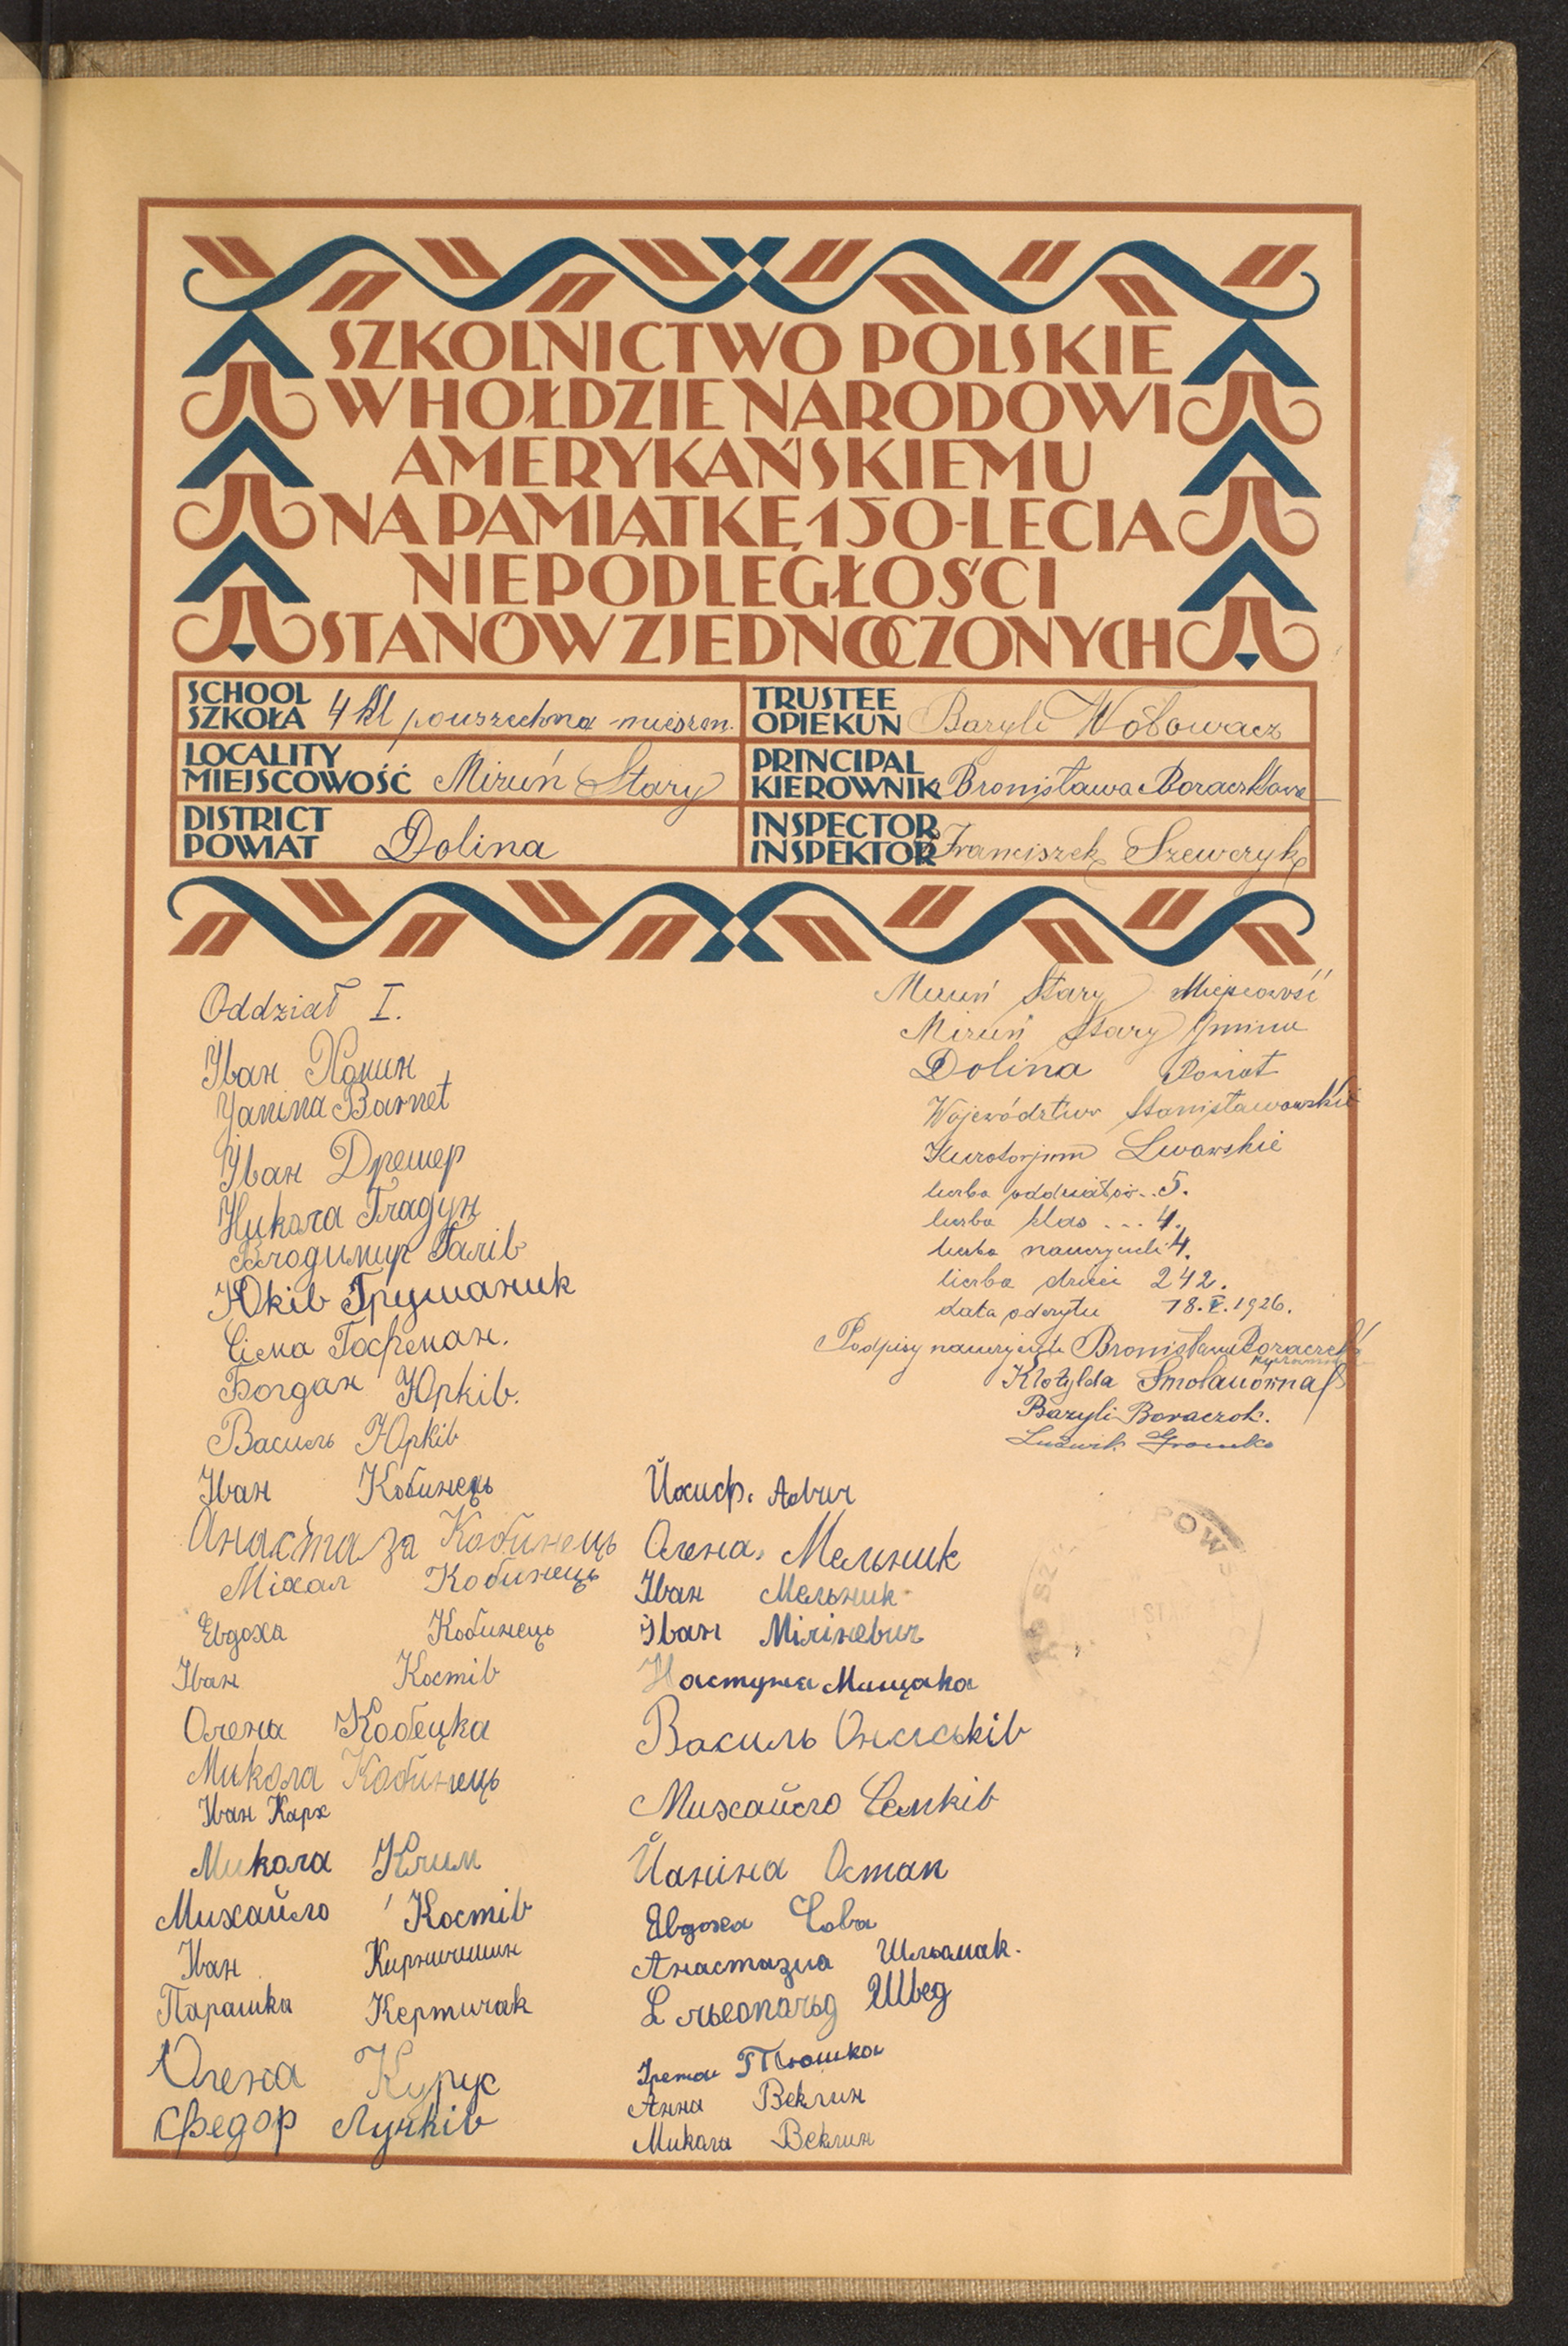 SZKOLNICTWO POLSKIE
W HOŁDZIE NARODOWI
AMERYKAŃSKIEMU
NA PAMIĄTKĘ 150-LECIA
NIEPODLEGŁOŚCI
STANÓW ZJEDNOCZONYCH
SCHOOL
SZKOŁA 4 kl powszechna mieszan.
TRUSTEE
OPIEKUN Bazyli
LOCALITY
MIEJSCOWOŚĆ Mizuń Stary
PRINCIPAL
KIEROWNIK Bronisława Boraczkowa
DISTRICT
POWIAT Dolina
INSPECTOR
INSPEKTOR Franciszek Szewczyk
Oddział I.
Іван
Yanina Barnet
Іван Дрешер
Никола Гладун
Влодимир Галів
Юків Грушаник
Гофман.
Богдан Юрків.
Василь Юрків
Іван Кобинець
Анастаза Кобинець
Міхал Кобинець
Евдоха Кобинець
Іван Костів
Олена Кобецка
Микола Кобинець
Іван Карх
Микола Клим
Михайло Костів
Іван Кирничишин
Парашка Кертичак
Олена Курус
Федор Лучків
Йосиф.
Олена. Мельник
Іван Мельник
Іван Міліневич
Настуня Мищака
Василь
Михайло Семків
Йаніна Остап
Евдоха Сова
Анастазиа Шльомак.
Льеопольд Швед
Ірена
Анна Веклин
Микола Веклин
Mizuń Stary Miejscowość
Mizuń Stary Gmina
Dolina Powiat
Województwo Stanisławowskie
Kuratorjum Lwowskie
liczba oddziałów..5.
liczba klas ... 4.
liczba nauczycieli 4.
liczba dzieci 242.
data 18.V.1926.
Podpisy nauczycieli Bronisława
Klotylda Smolanówna
Bazyli Boraczok.
Ludwik Gromko
POW